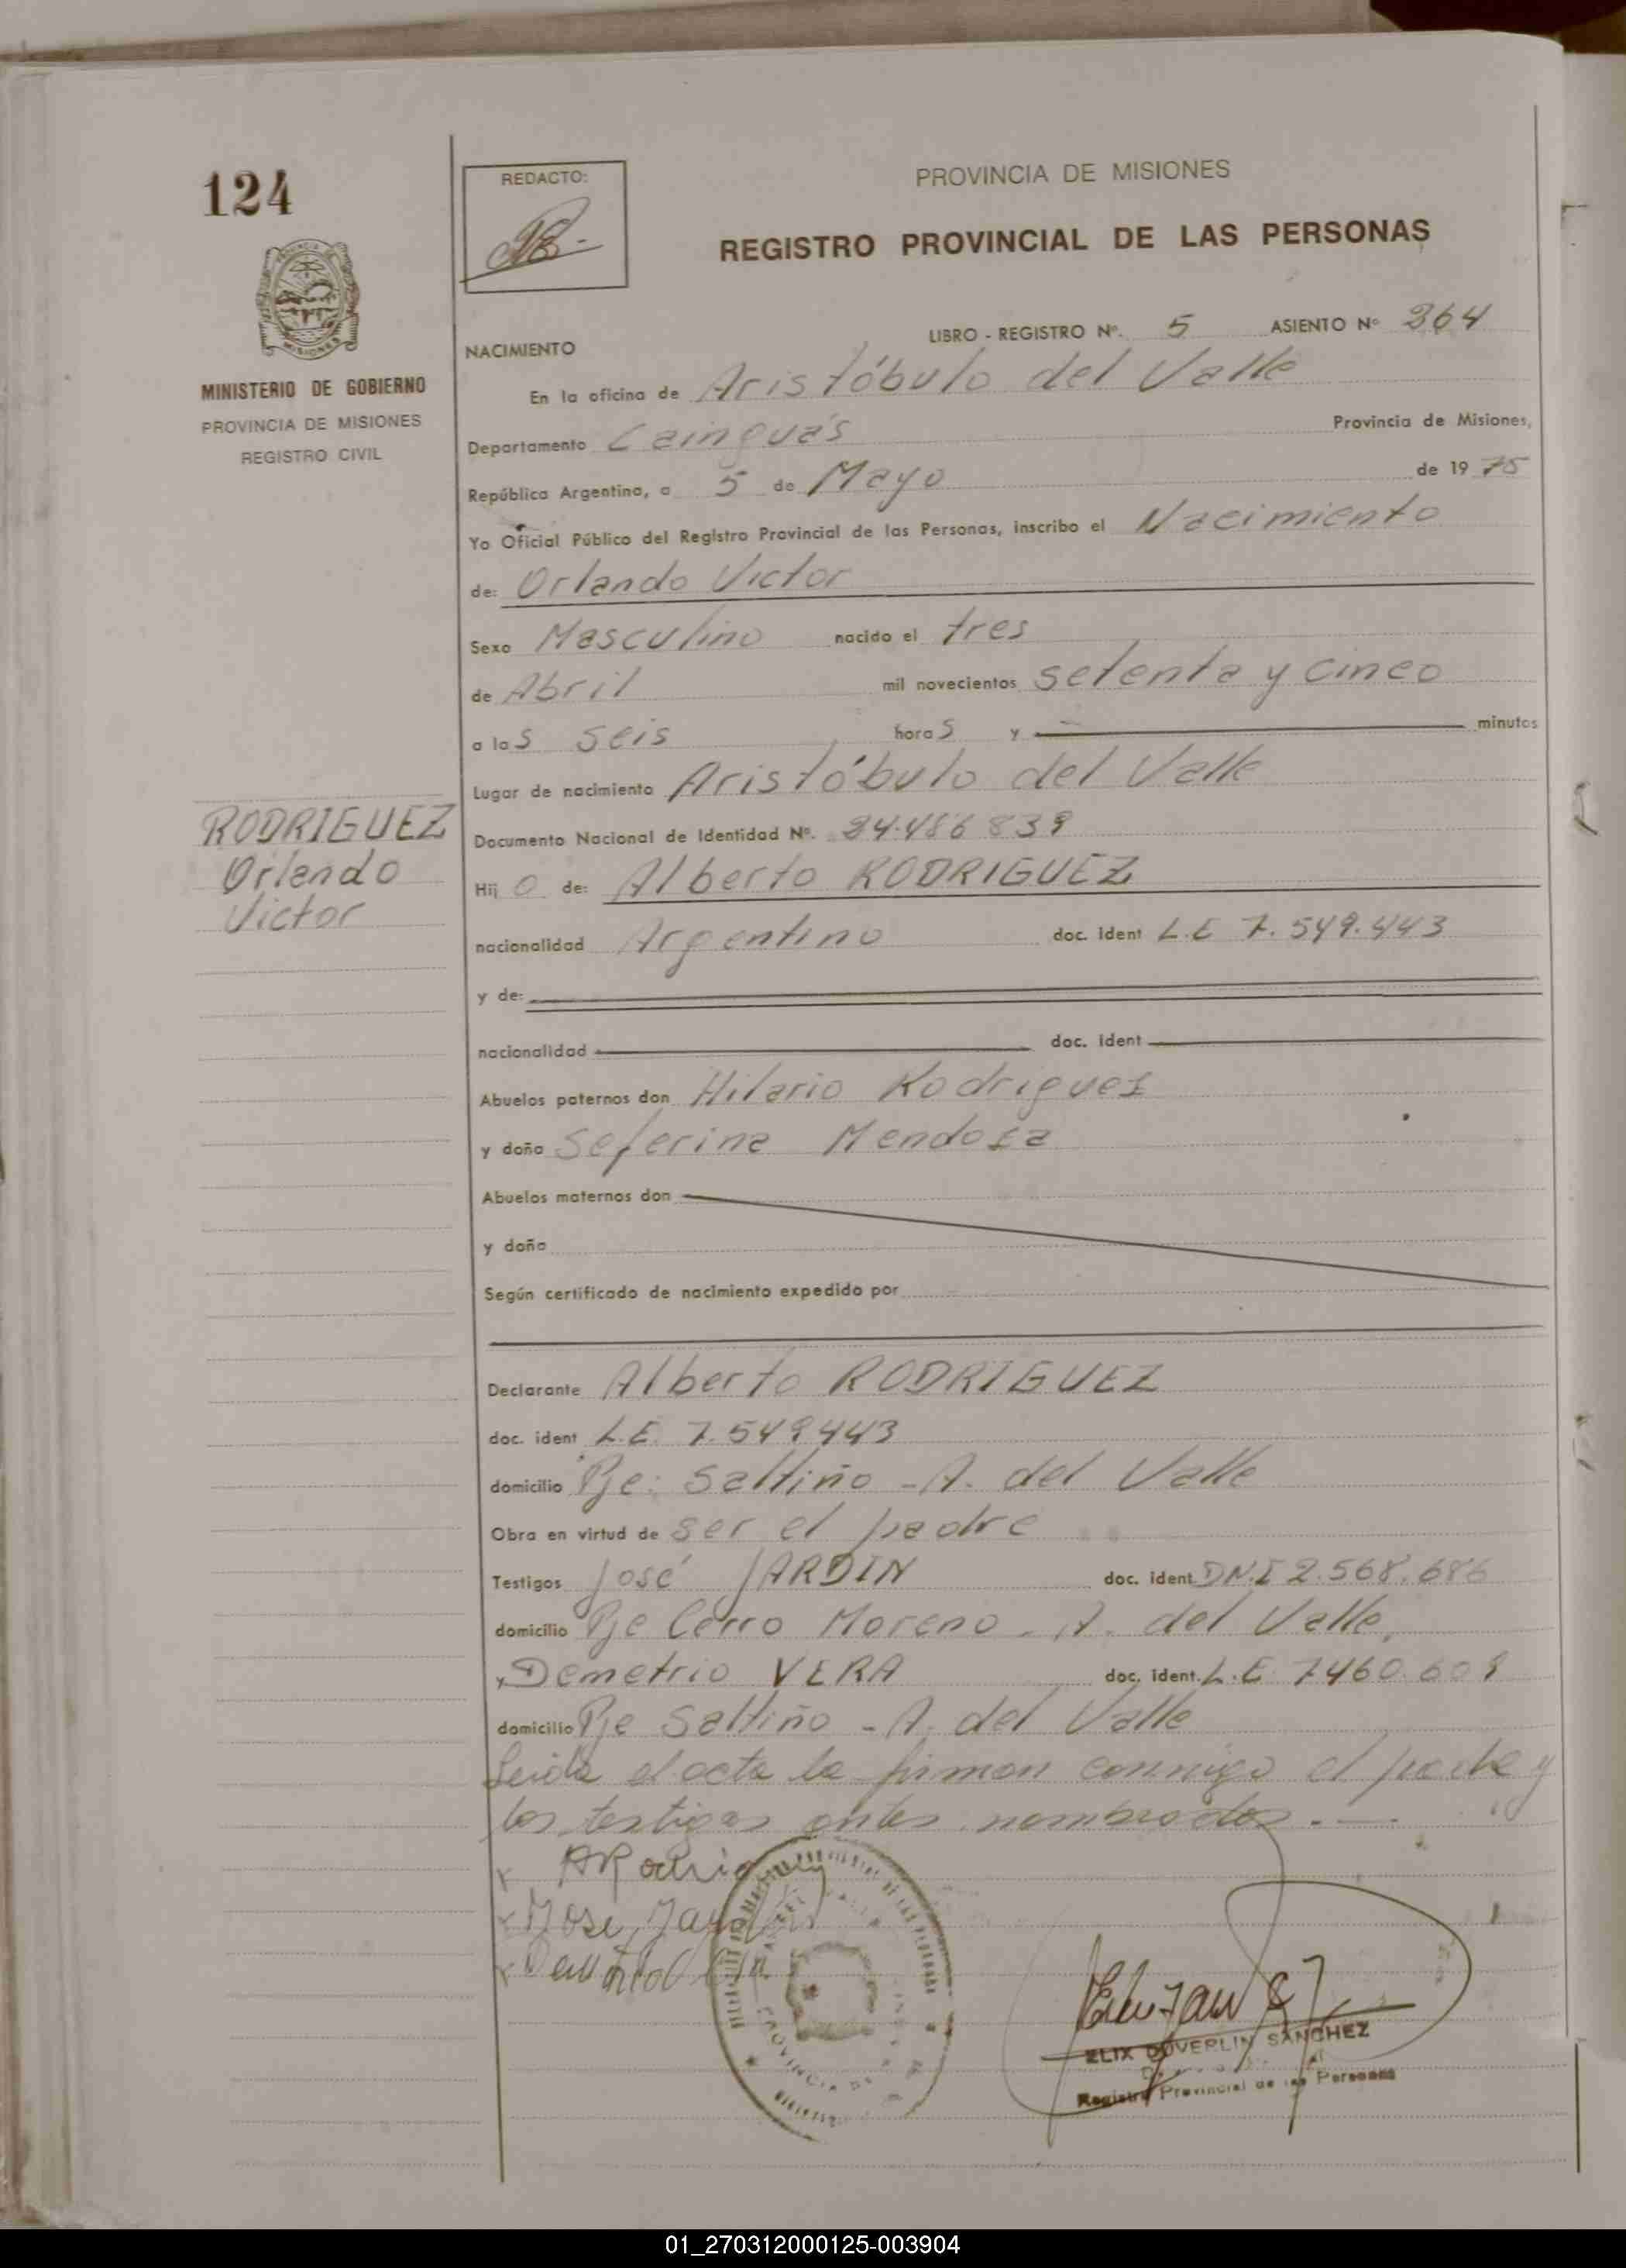 124
REDACTO:
PROVINCIA DE MISIONES
REGISTRO PROVINCIAL DE LAS PERSONAS
MISIONES
MINISTERIO DE GOBIERNO
PROVINCIA DE MISIONES
REGISTRO CIVIL
LIBRO - REGISTRO Nº. 5 ASIENTO Nº 364
NACIMIENTO
En la oficina de Aristóbulo del Valle
Departamento Cainguás Provincia de Misiones,
República Argentina, a 5 de Mayo de 1975
Yo Oficial Público del Registro Provincial de las Personas, inscribo el Nacimiento
de: Orlando Victor
Sexo Masculino nacido el tres
de Abril mil novecientos setenta y cinco
a las seis horas y minutos
Lugar de nacimiento Aristóbulo del Valle
Documento Nacional de Identidad Nº. 24.486839
RODRIGUEZ
Orlando
Victor
Hijo de: Alberto RODRIGUEZ
nacionalidad Argentino doc. ident L.E 7.549.443
y de:
nacionalidad doc. ident
Abuelos paternos don Hilario Rodriguez
y doña Seferina Mendoza
Abuelos maternos don
y doña
Según certificado de nacimiento expedido por
Declarante Alberto RODRIGUEZ
doc. ident L.E. 7.549443
domicilio Pje: Saltiño - A. del Valle
Obra en virtud de ser el padre
Testigos José JARDIN doc. ident DN.I 2.568.686
domicilio Pje Cerro Moreno - A. del Valle,
y Demetrio VERA doc. ident. L.E 7460.609
domicilio Pje Saltiño - A. del Valle
Leida el acta la firman conmigo el padre y
los testigos antes nombrados.—
Jose
ELIX DUVERLIN SANCHEZ
Registro Provincial de las Personas
01_270312000125-003904